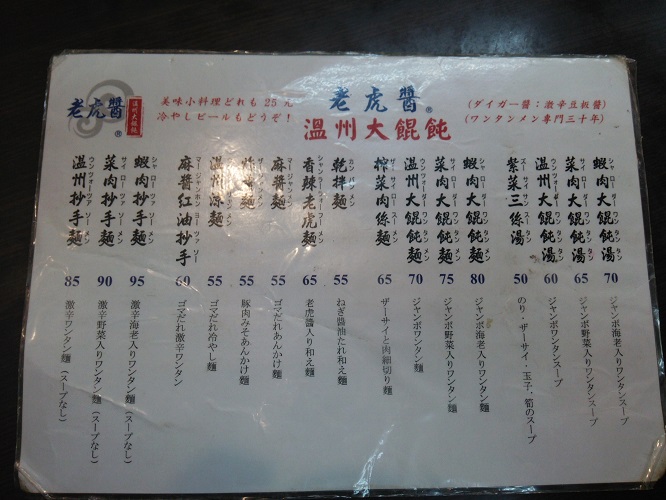 老虎醬®
溫州大餛飩
美味小料理どれも25元
冷やしビールもどうぞ！
老虎醬®
溫州大餛飩
(ダイガー醬：激辛豆板醬)
(ワンタンメン専門三十年)
蝦肉大餛飩湯 70 ジャンボ海老入りワンタンスープ
菜肉大餛飩湯 65 ジャンボ野菜入りワンタンスープ
溫州大餛飩湯 60 ジャンボワンタンスープ
紫菜三絲湯 50 のり・ザーサイ・玉子、筍のスープ
蝦肉大餛飩麵 80 ジャンボ海老入りワンタン麵
菜肉大餛飩麵 75 ジャンボ野菜入りワンタン麵
溫州大餛飩麵 70 ジャンボワンタン麵
榨菜肉絲麵 65 ザーサイと肉細切り麵
乾拌麵 55 ねぎ醬油たれ和え麵
香辣老虎麵 65 老虎醬入り和え麵
麻醬麵 55 ゴマだれあんかけ麵
55 豚肉みそあんかけ麵
溫州涼麵 55 ゴマだれ冷やし麵
麻醬紅油抄手 60 ゴマだれ激辛ワンタン
蝦肉抄手麵 95 激辛海老入りワンタン麵（スープなし）
菜肉抄手麵 90 激辛野菜入りワンタン麵（スープなし）
溫州抄手麵 85 激辛ワンタン麵（スープなし）